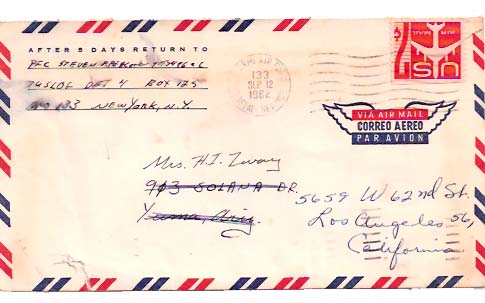 AFTER 5 DAYS RETURN TO
PFC STEVEN
TUSLOG DET 4 BOX 125
APO 133 NEW YORK, N.Y.
133
SEP 12
1962
AIR MAIL
US
VIA AIR MAIL
CORREO AEREO
PAR AVION
Mrs. H.I.
913 SOLANA DR.
Yuma, Ariz
5659 W 62nd St.
Los Angeles 56,
California